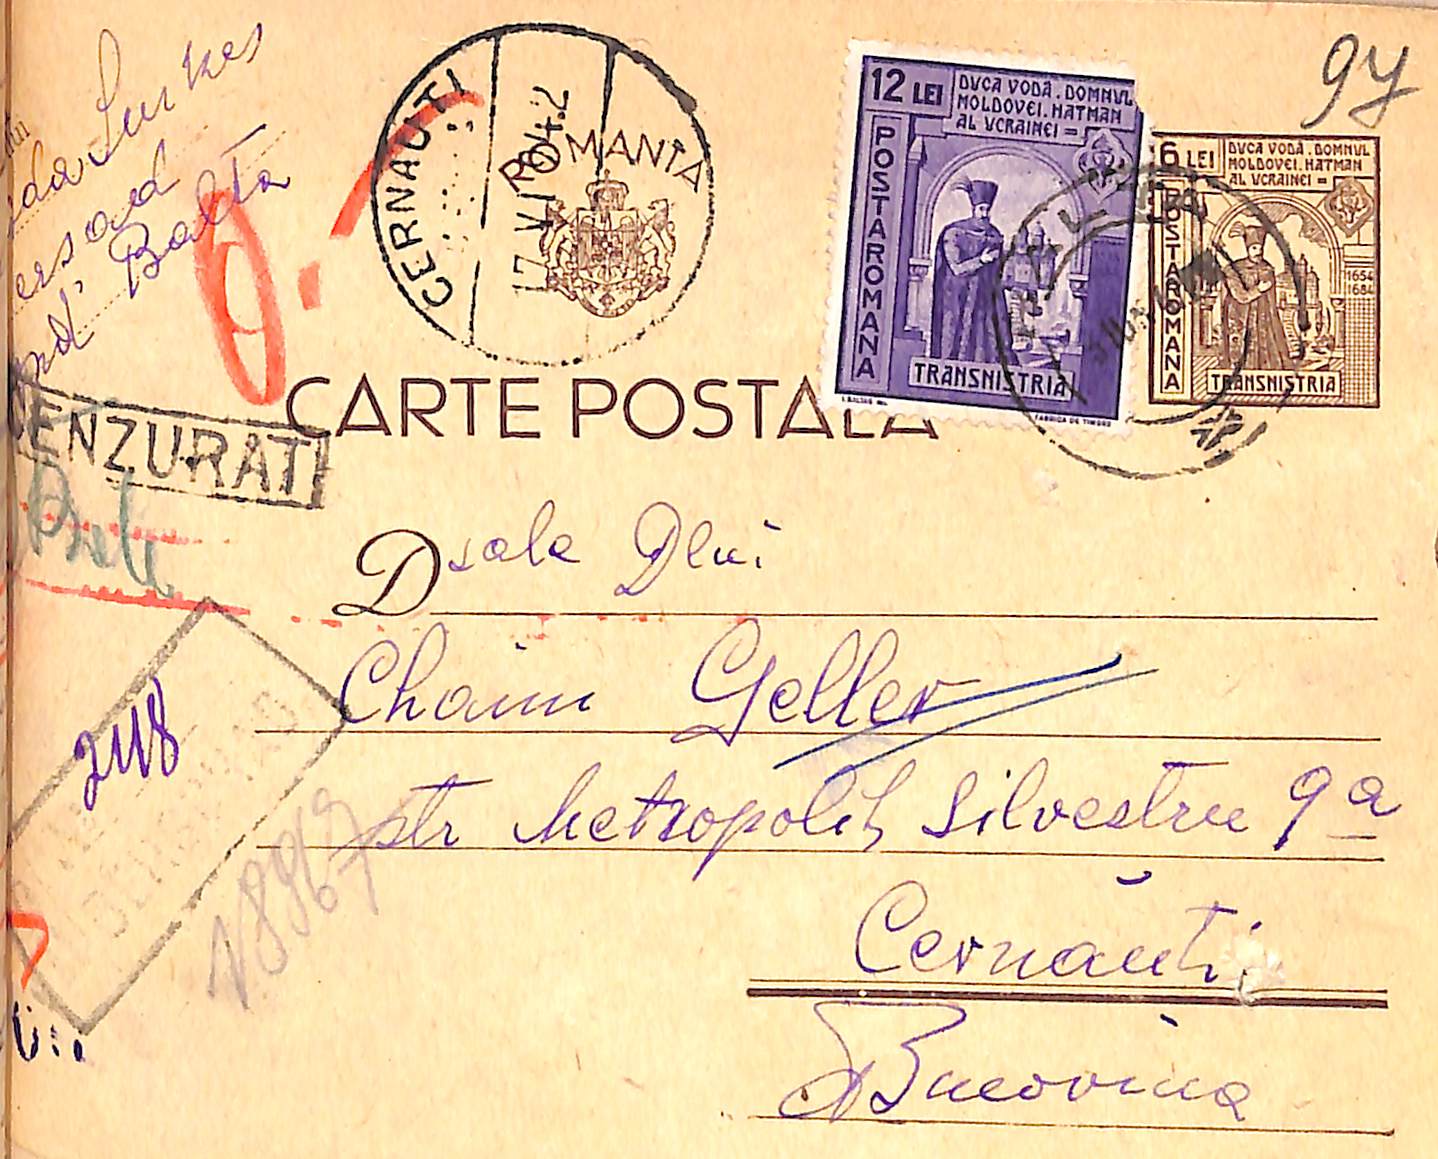 Surkes
Bersad
Jud. Balta
CERNAUTI
ROMANIA
17. VI 942
12 LEI
DUCA VODĂ . DOMNUL
MOLDOVEI. HATMAN
AL UCRAINEI =
POSTA ROMANA
TRANSNISTRIA
FABRICA DE TIMBRE
97
6 LEI
DUCA VODĂ . DOMNUL
MOLDOVEI. HATMAN
AL UCRAINEI =
POSTA ROMANA
1654
1684
TRANSNISTRIA
CARTE POSTALA
CENZURAT
Dsale Dlui
Chaim Geller
str Metropolit Silvestru 9a
Cernăuti
Bucovina
2118